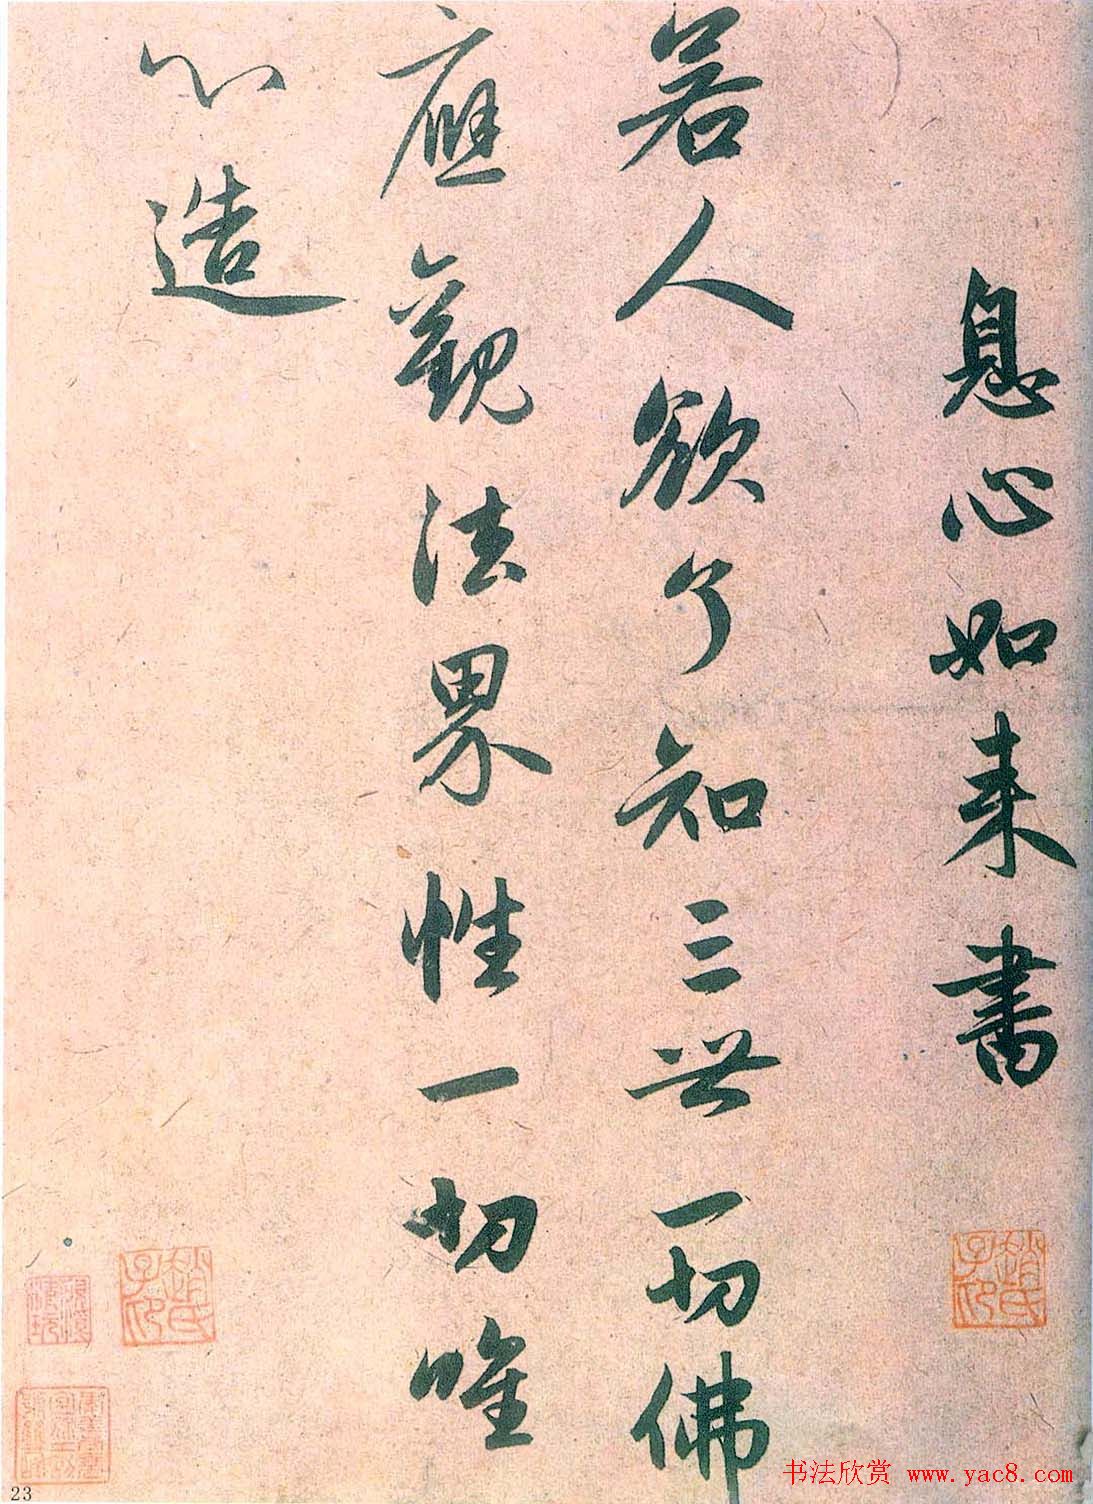 息心如来書
若人欲了知三世一切佛
應觀法界性一切唯
心造
趙氏子印
趙氏子印
書法欣赏 www.yac8.com
23